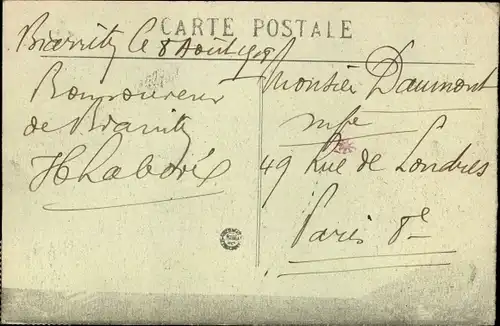 CARTE POSTALE
Biarritz le 8 Août
Bon souvenir
de Biarritz
H Laboré
Monsier Daumont
49 Rue de Londres
Paris 8e